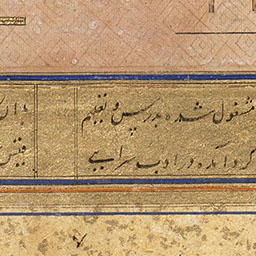 مشغول شده بدرس و تعلیم
گردآمده در ادب سرایی